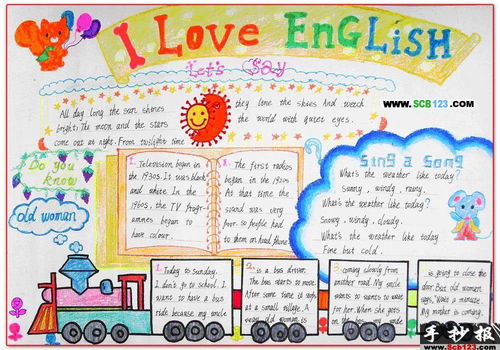 I LOVE ENGLISH
Let's Say
www.SCB123.COM
All day long the sun shines
bright. The moon and the stars
come out at night. From twilight time
they love the skies And watch
the world with quiet eyes.
Do you
know
old woman
1. Television began in
the 1930s. It was black
and white. In the
1960s, the TV progr-
ammes began to
have colour.
2. The first radios
began in the 1920s
At that time the
sound was very
poor. so people had
to them on head phone
Sing a Song
What's the weather like today?
Sunny, windy, rainy.
What's the weather like today?
Snowy, windy, cloudy.
What's the weather like today
Fine but cold.
1. Today to sunday.
I don't go to school. I
wants to have a bus
ride because my uncle
2. is a bus driver.
The bus starts to move.
After some time it stops
at a small village. A
very old woman is
3. coming slowly from
another road. My uncle
wants to wants to wait
for her. When she gets
on the bus, my uncle
is going to close the
door. But old woman
says, Wait a minute.
My mother is coming.
手抄报
www.Scb123.com